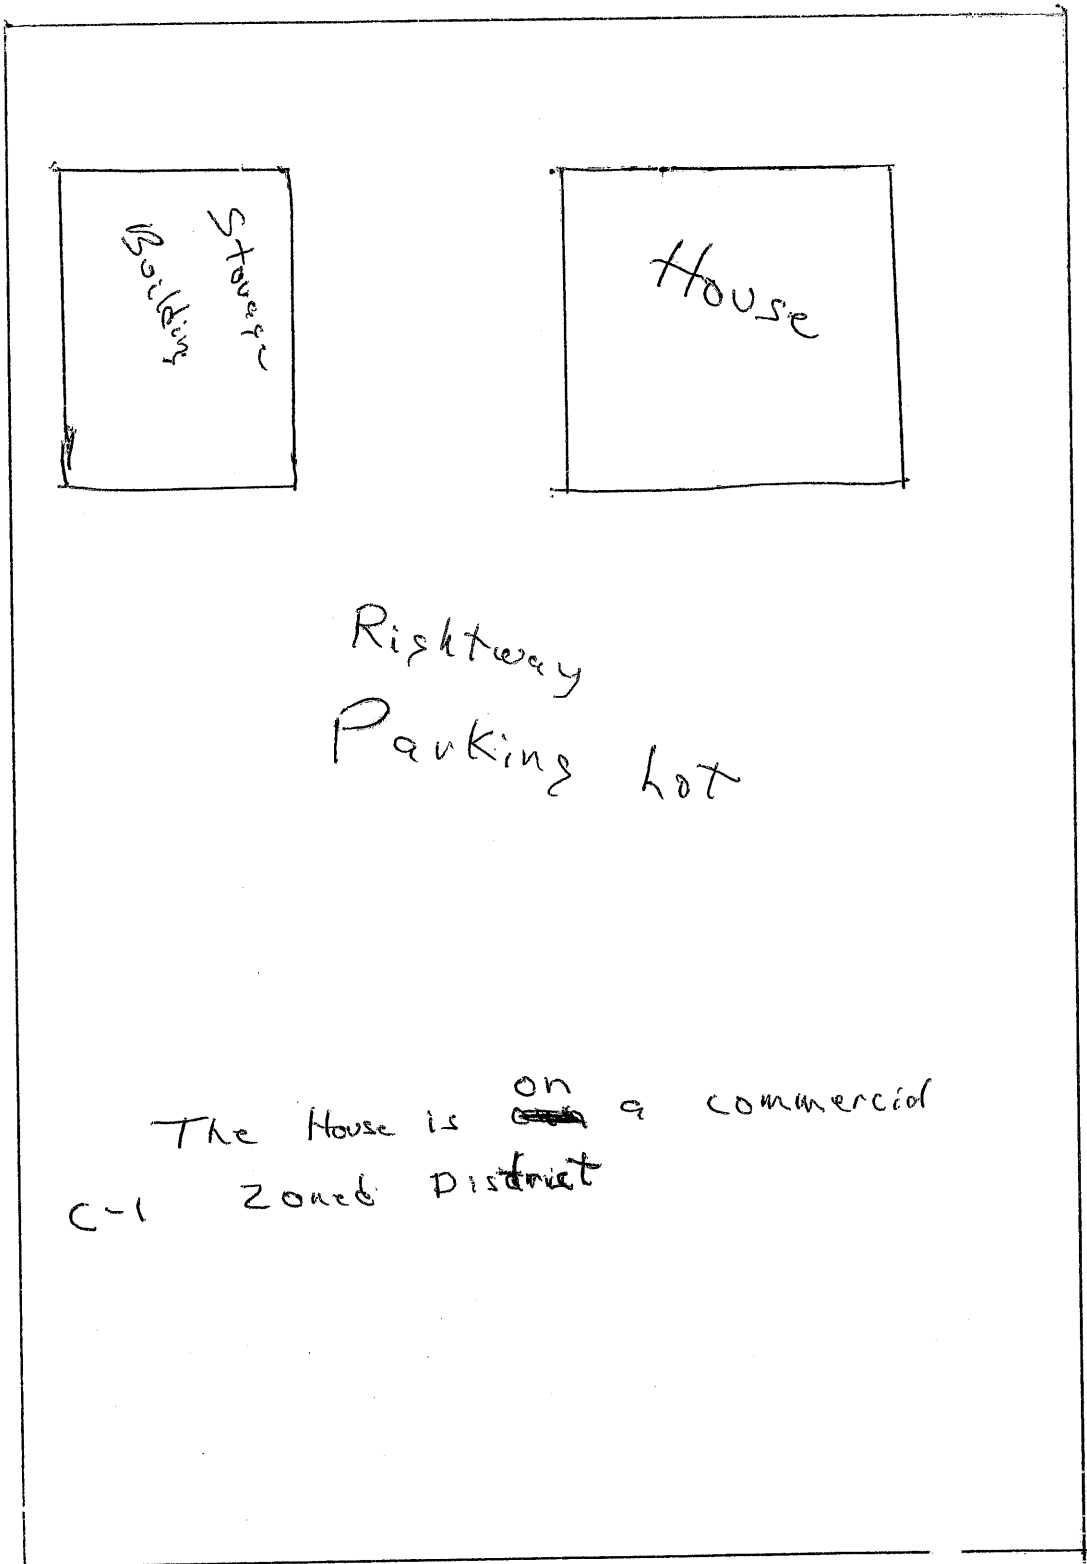 Storage
Building
House
Rightway
Parking Lot
on
The House is a commercial
C-1 Zoned District